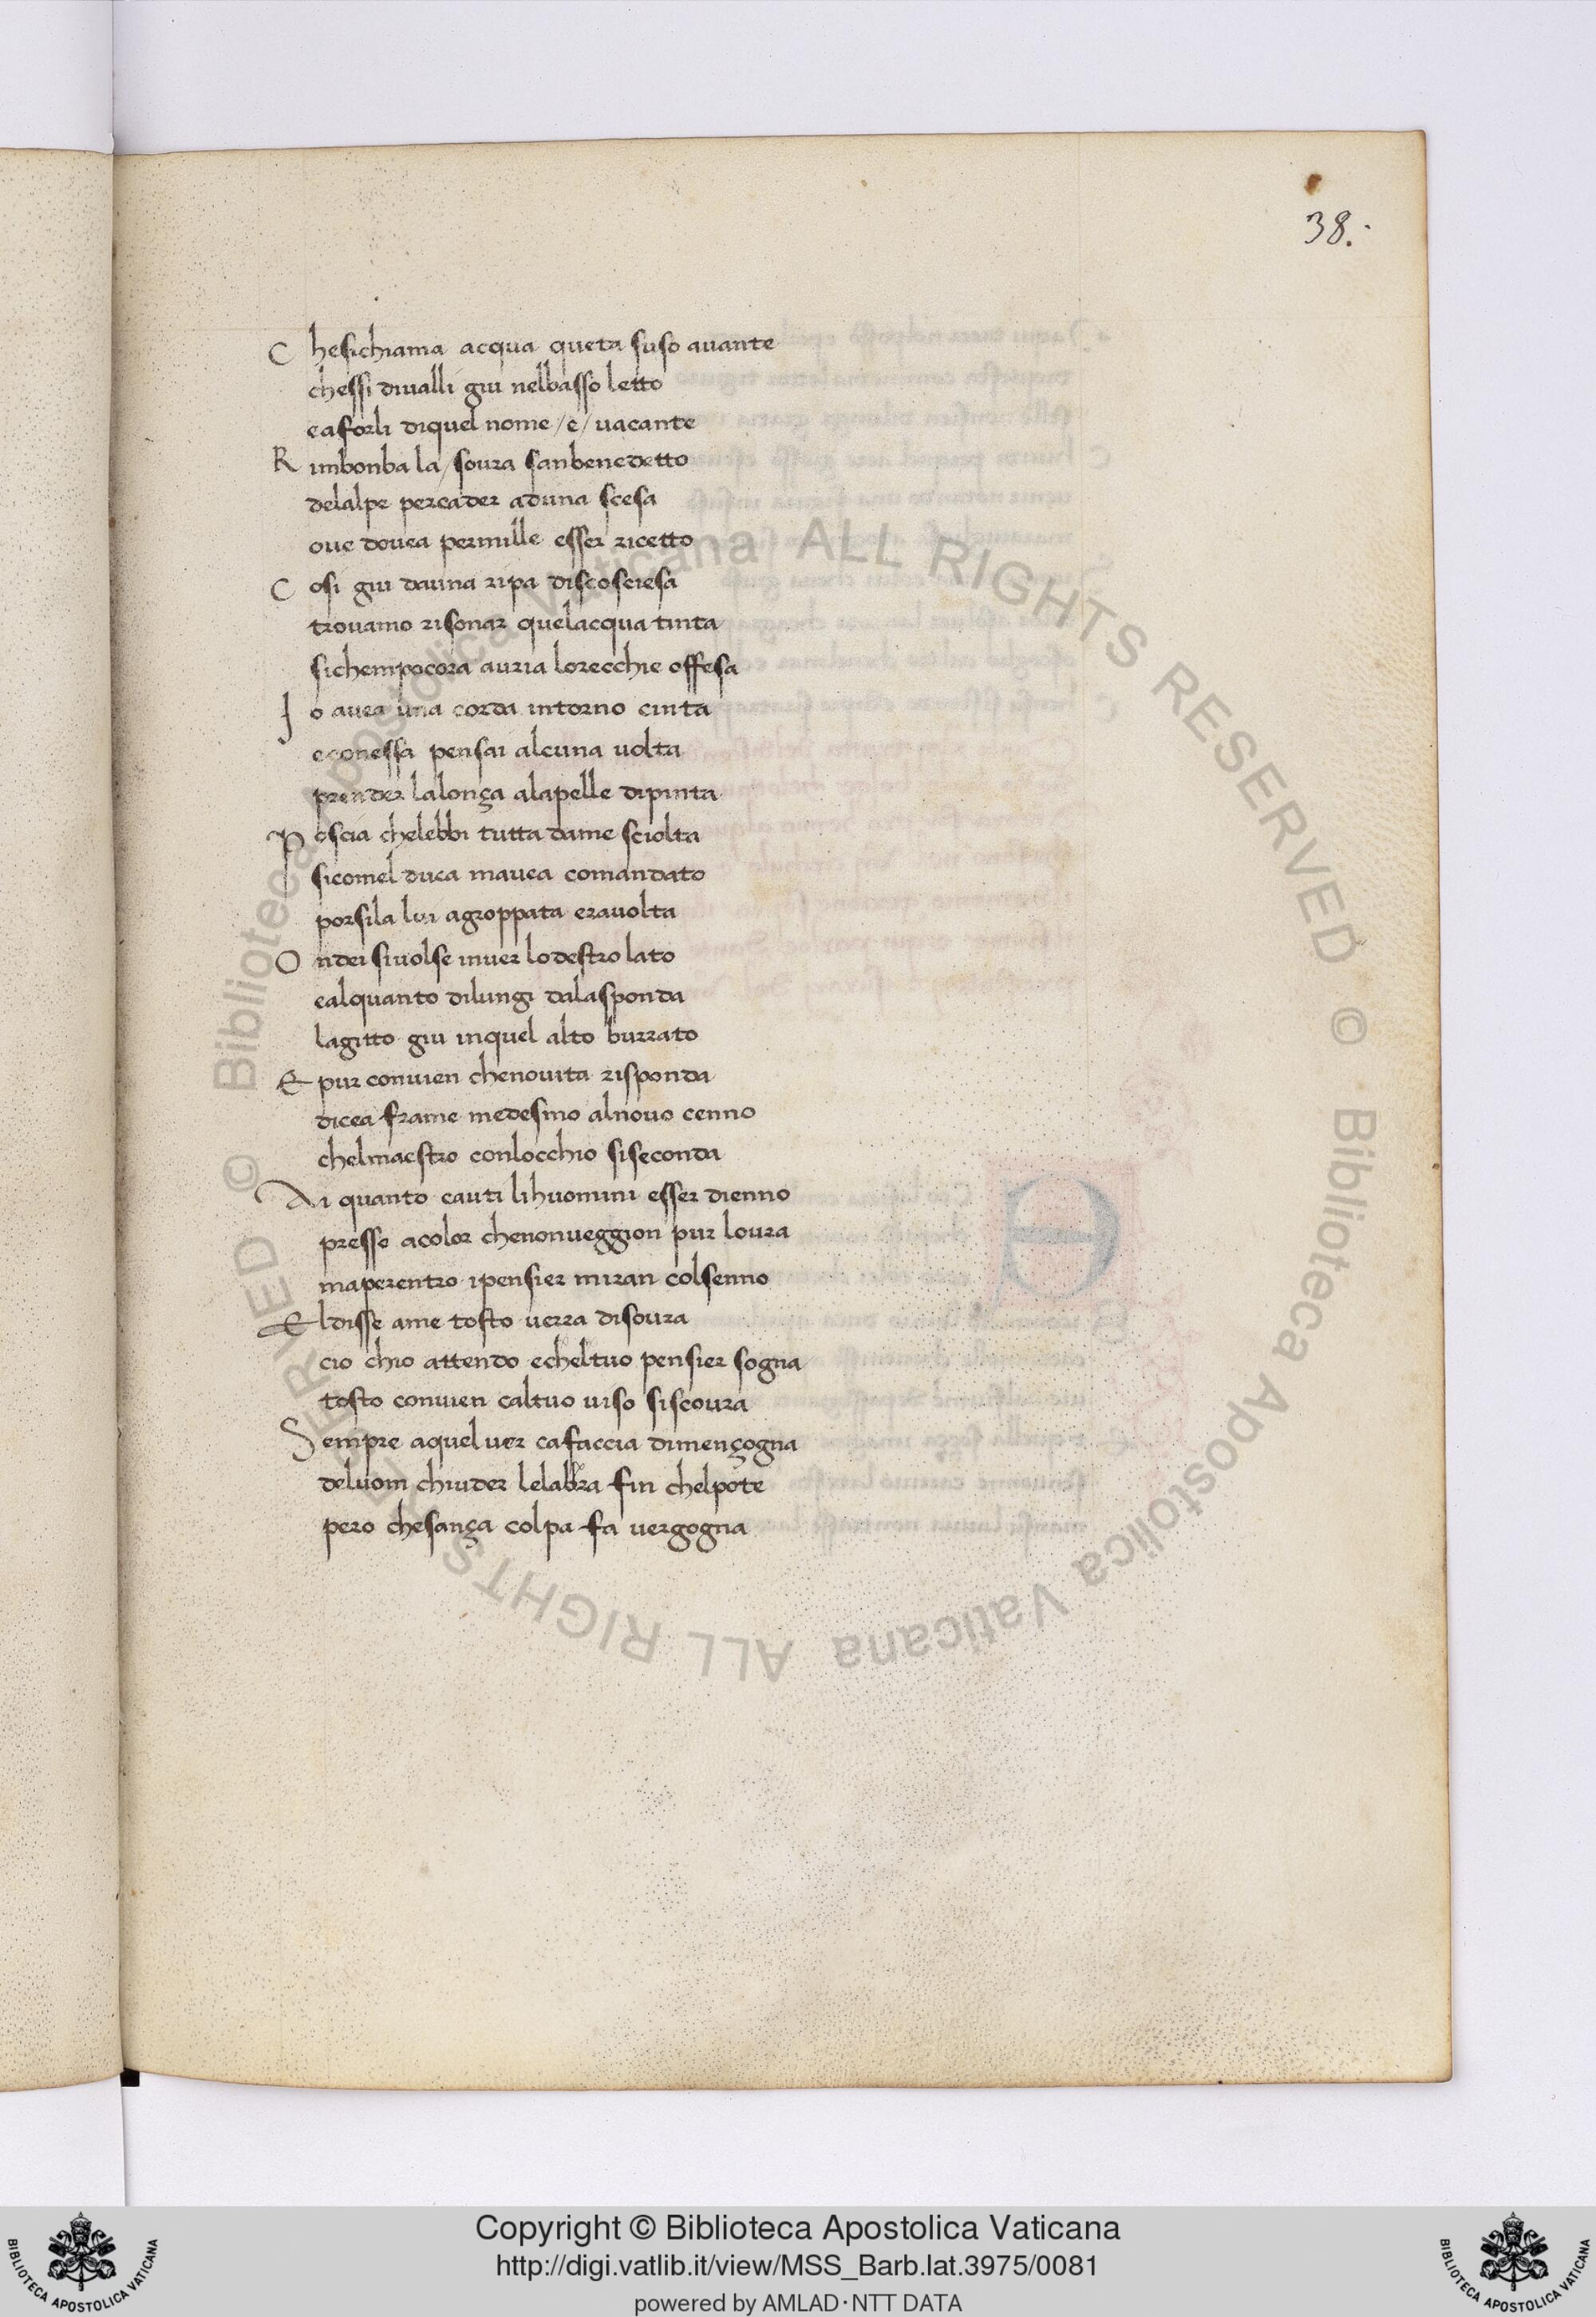 38.
C hesichiama acqua queta suso auante
chessi diualli giu nelbasso letto
eaforli diquel nome /e/ uacante
R imbonba la / soura sanbenedetto
delalpe percader aduna scesa
oue douea permille esser ricetto
C osi giu dauna ripa discosciesa
trouamo risonar quelacqua tinta
sichempocora auria lorecchie offesa
J o auea una corda intorno cinta
econessa pensai alcuna uolta
prender lalonça alapelle dipinta
P oscia chelebbi tutta dame sciolta
sicomel duca mauea comandato
porsila lui agroppata erauolta
O ndei siuolse inuer lodestro lato
ealquanto dilungi dalasponda
lagitto giu inquel alto burrato
E pur conuien chenouita risponda
dicea frame medesmo alnouo cenno
chelmaestro conlocchio siseconda
Ai quanto cauti lihuomini esser dienno
presso acolor chenonueggion pur loura
maperentro ipensier miran colsenno
El disse ame tosto uerra disoura
cio chio attendo echeltuo pensier sogna
tosto conuien caltuo uiso siscoura
Sempre aquel uer cafaccia dimençogna
deluom chiuder lelabbra fin chelpote
pero chesança colpa fa uergogna
© Biblioteca Apostolica Vaticana ALL RIGHTS RESERVED © Biblioteca Apostolica Vaticana ALL RIGHTS RESERVED
BIBLIOTECA APOSTOLICA VATICANA
Copyright © Biblioteca Apostolica Vaticana
http://digi.vatlib.it/view/MSS_Barb.lat.3975/0081
powered by AMLAD·NTT DATA
BIBLIOTECA APOSTOLICA VATICANA